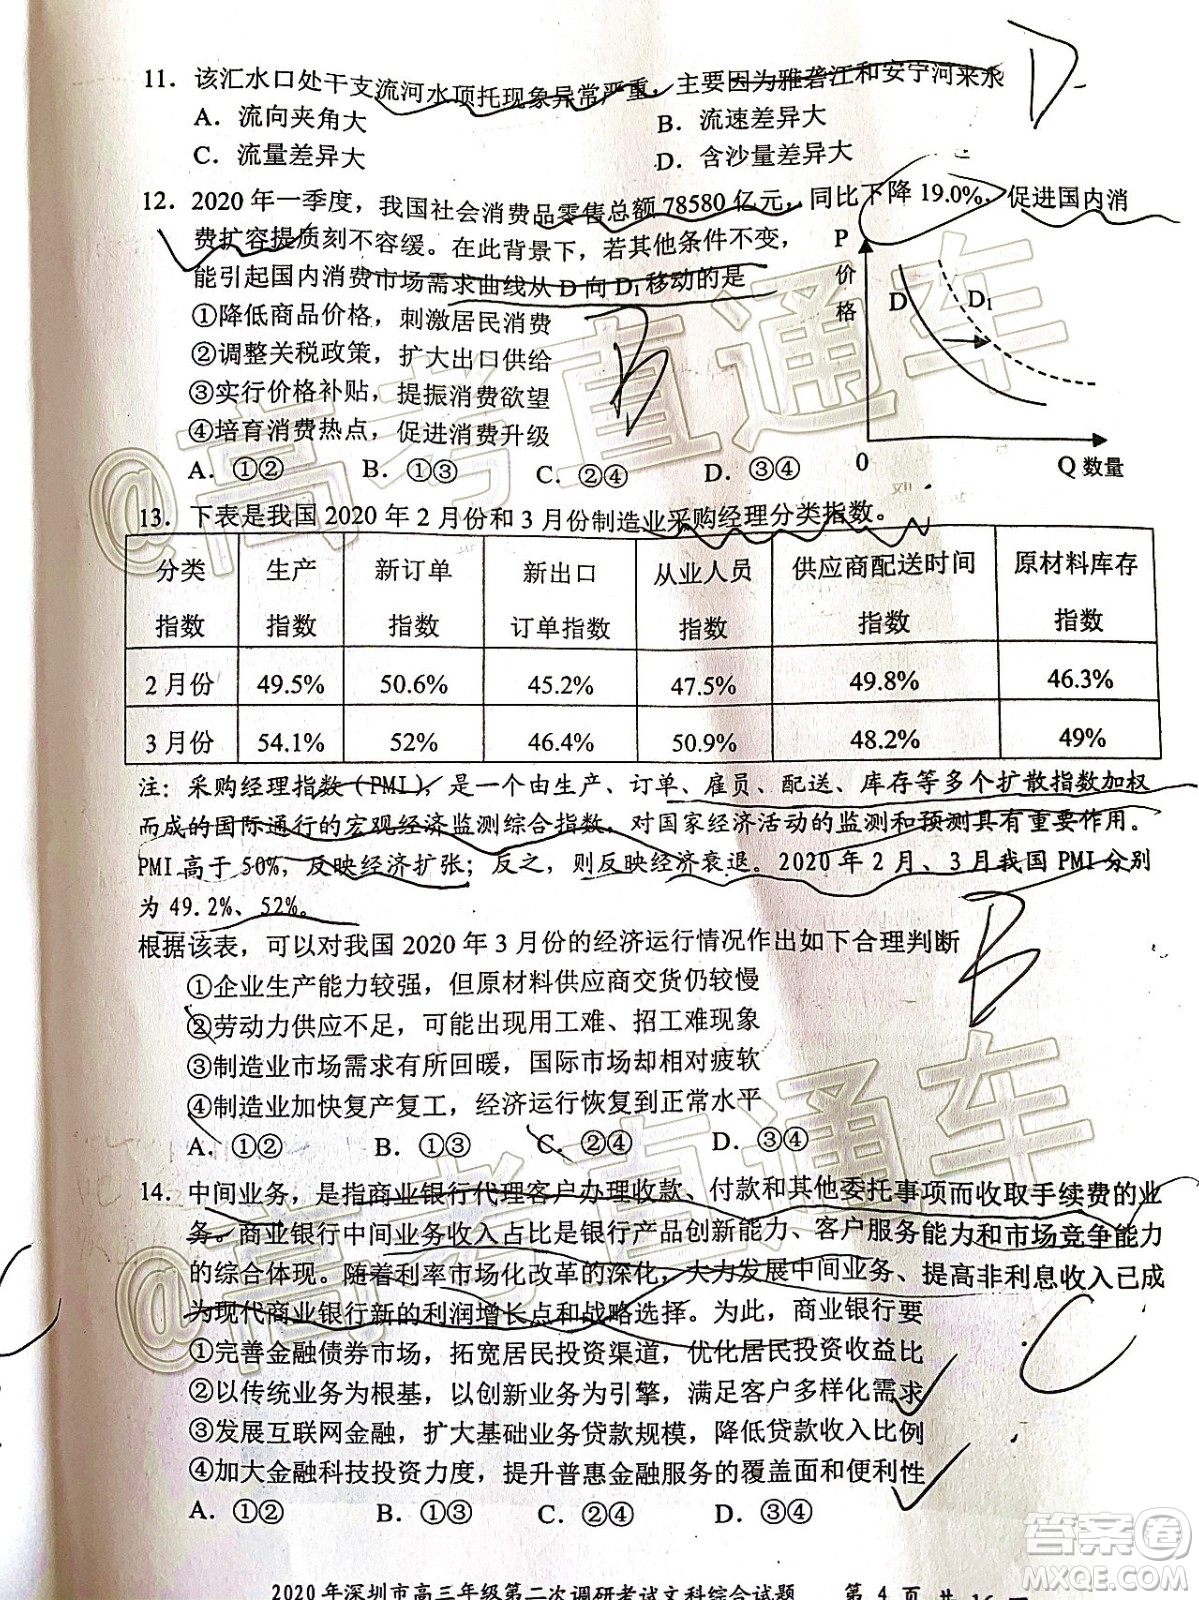 11．该汇水口处干支流河水顶托现象异常严重，主要因为雅砻江和安宁河来水
A．流向夹角大
B．流速差异大
C．流量差异大
D．含沙量差异大
D
12．2020年一季度，我国社会消费品零售总额78580亿元，同比下降19.0%，促进国内消
费扩容提质刻不容缓。在此背景下，若其他条件不变，
能引起国内消费市场需求曲线从D向D₁移动的是
①降低商品价格，刺激居民消费
②调整关税政策，扩大出口供给
③实行价格补贴，提振消费欲望
④培育消费热点，促进消费升级
A．①②
B．①③
C．②④
D．③④
B
P
价
格
D
D₁
0
Q 数量
13．下表是我国2020年2月份和3月份制造业采购经理分类指数。
分类指数 生产指数 新订单指数 新出口订单指数 从业人员指数 供应商配送时间指数 原材料库存指数
2月份 49.5% 50.6% 45.2% 47.5% 49.8% 46.3%
3月份 54.1% 52% 46.4% 50.9% 48.2% 49%
注：采购经理指数(PMI)，是一个由生产、订单、雇员、配送、库存等多个扩散指数加权
而成的国际通行的宏观经济监测综合指数，对国家经济活动的监测和预测具有重要作用。
PMI高于50%，反映经济扩张；反之，则反映经济衰退。2020年2月、3月我国PMI分别
为49.2%、52%。
根据该表，可以对我国2020年3月份的经济运行情况作出如下合理判断
①企业生产能力较强，但原材料供应商交货仍较慢
②劳动力供应不足，可能出现用工难、招工难现象
③制造业市场需求有所回暖，国际市场却相对疲软
④制造业加快复产复工，经济运行恢复到正常水平
A．①②
B．①③
C．②④
D．③④
B
14．中间业务，是指商业银行代理客户办理收款、付款和其他委托事项而收取手续费的业
务。商业银行中间业务收入占比是银行产品创新能力、客户服务能力和市场竞争能力
的综合体现。随着利率市场化改革的深化，大力发展中间业务、提高非利息收入已成
为现代商业银行新的利润增长点和战略选择。为此，商业银行要
①完善金融债券市场，拓宽居民投资渠道，优化居民投资收益比
②以传统业务为根基，以创新业务为引擎，满足客户多样化需求
③发展互联网金融，扩大基础业务贷款规模，降低贷款收入比例
④加大金融科技投资力度，提升普惠金融服务的覆盖面和便利性
A．①②
B．①③
C．②④
D．③④
C
2020年深圳市高三年级第二次调研考试文科综合试题 第 4 页 共 16
@高考直通车
@高考直通车
答案圈
MXQE.COM